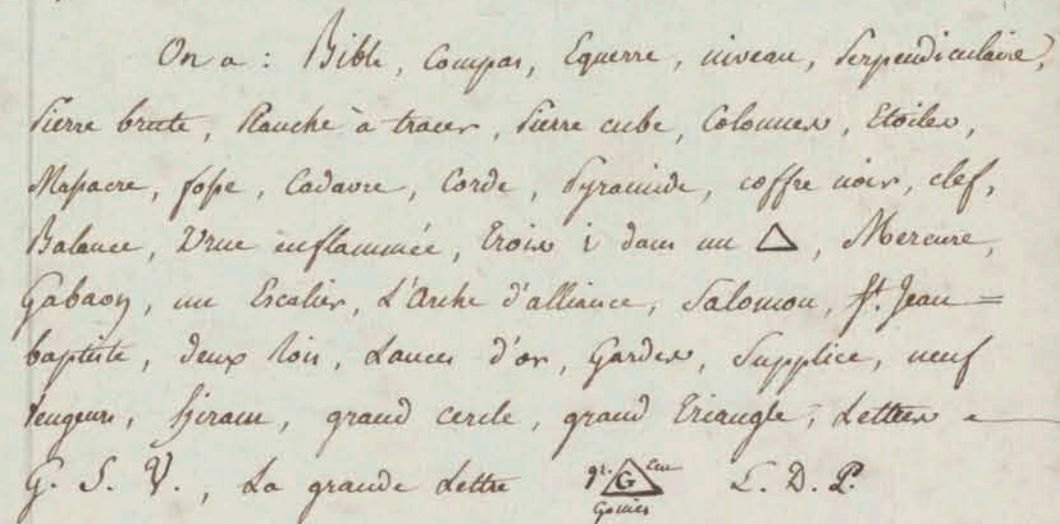 On a : Bible, Compas, Equerre, niveau, Perpendiculaire,
Pierre brute, Planche à tracer, Pierre cube, Colonnes, Etoiles,
Massacre, fosse, Cadavre, Corde, Pyramide, coffre noir, clef,
Balance, Urne enflammée, Trois i dans un △, Mercure,
Gabaon, un Escalier, L'Arche d'alliance, Salomon, St. Jean=
baptiste, deux Rois, Lances d'or, Gardes, Supplice, neuf
Vengeurs, hiram, grand cercle, grand Triangle, Lettres
G. S. V., La grande Lettre gr. G L. D. P.